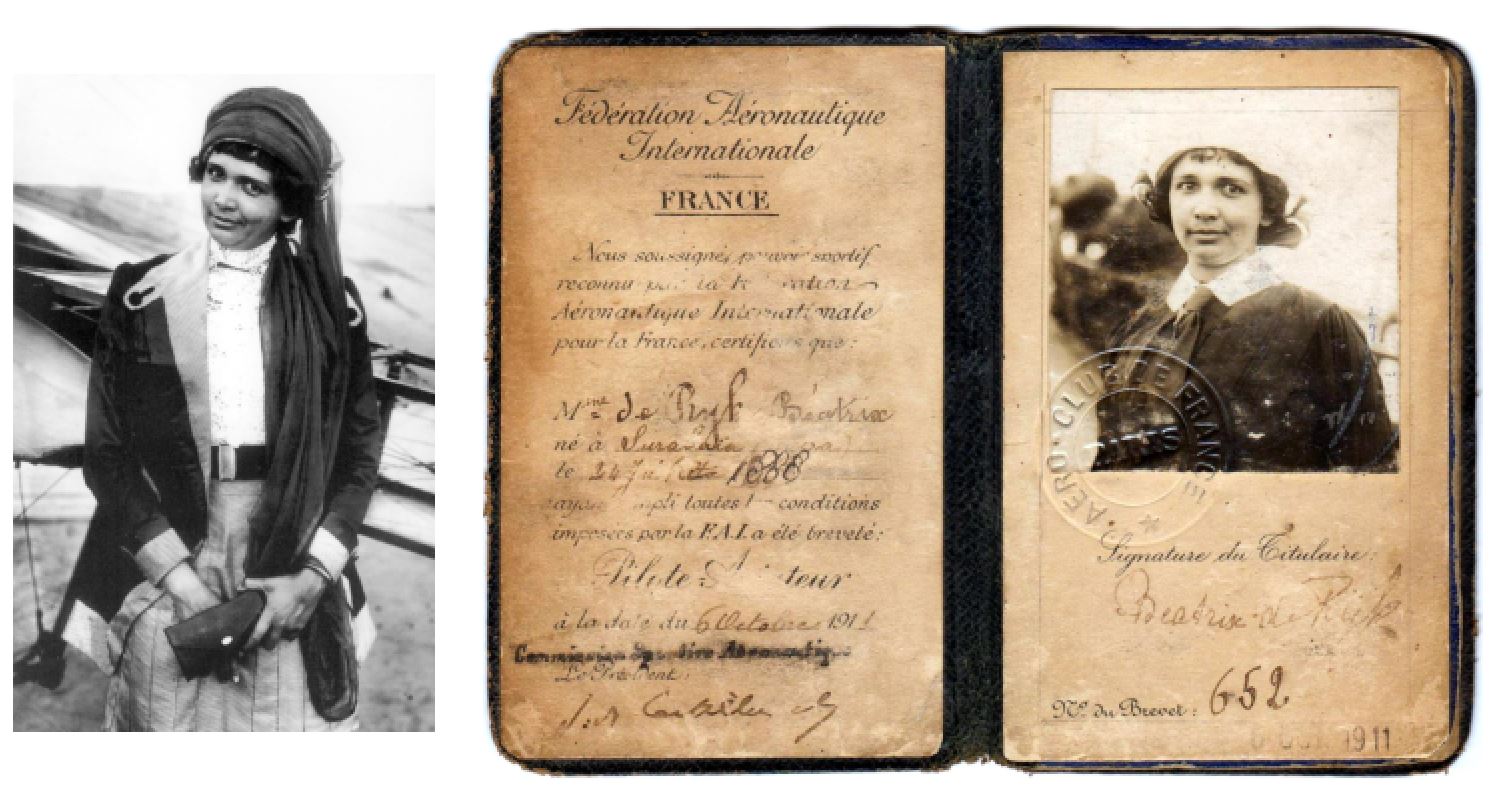 Fédération Aéronautique
Internationale
FRANCE
Nous soussigné, pouvoir sportif
reconnu par la
Aéronautique Internationale
pour la France, certifions que:
Mme de Ryk Béatrix
né à
le 24 Juillet 1888
toutes conditions
imposées par la F.A.I. a été breveté:
Pilote
à la date du 6 Octobre 1911
Commission Sportive Aéronautique
Le Président:
AERO-CLUB DE FRANCE
PARIS
Signature du Titulaire:
Béatrix de Rijk
No. du Brevet: 652
1911